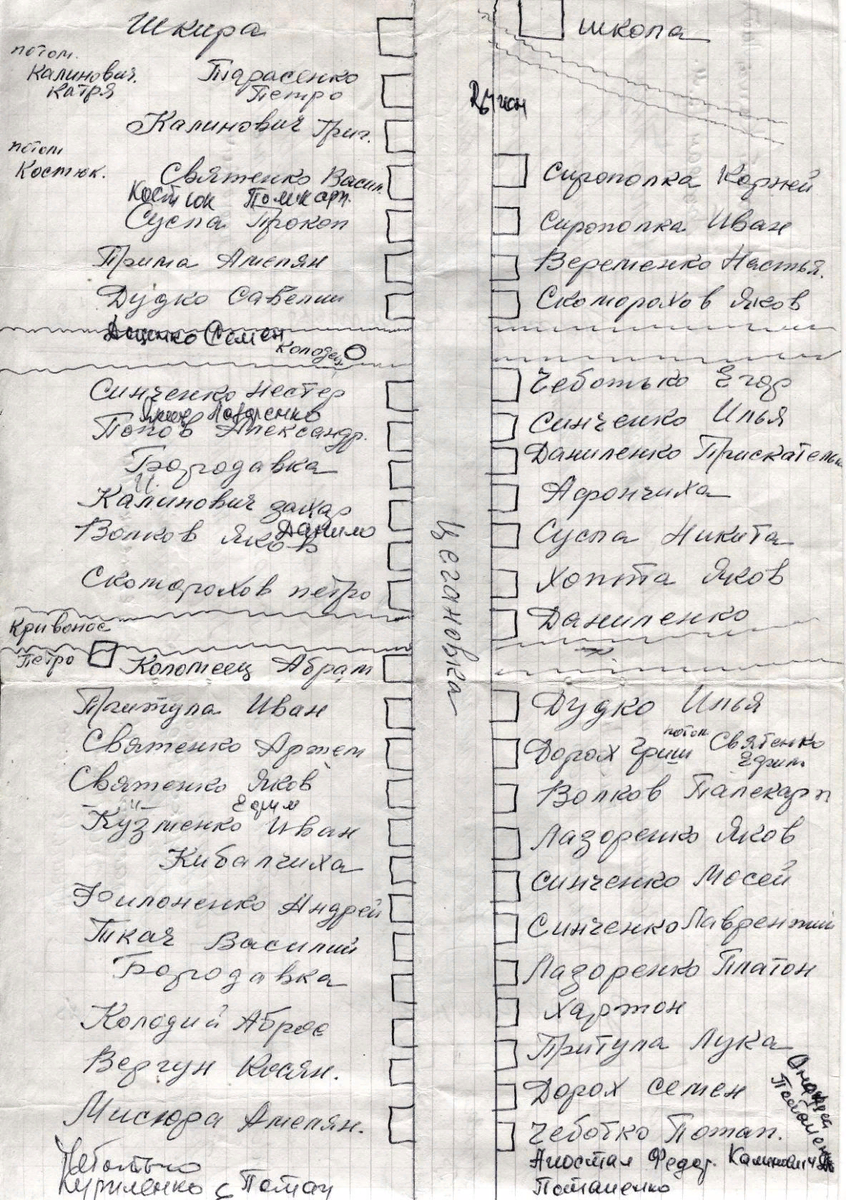 Шкира
потом
Калинович.
Катря
Тарасенко
Петро
Калинович Григ.
потом
Костюк.
Святенко Васил.
Костюк Поликарп.
Суспа Прокоп
Прима Амелян
Дудко Савелий
Яценко Семен
Колодец
Синченко Нестер
Лазоренко
Попов Александр.
Бородавка
Калинович захар
Данило
Волков Яков
Скоморохов петро
Кривонос
Петро
Коломеец Абрам
Притула Иван
Святенко Артем
Святенко Яков
-"- Ефим
Кузменко Иван
Кибалчиха
Филоненко Андрей
Ткач Василий
Бородавка
Колодий
Вергун Касян.
Мисюра Амелян.
Чеботько
Куриленко с Потап
Цегановка
школа
Сирополка Корней
Сирополка Иван
Веременко Настья.
Скоморохов Яков
Чеботько Егор
Синченко Илья
Даниленко
Афончиха
Суспа Никита
Хопта Яков
Даниленко
Дудко Илья
Дорох Гриш
потом Святенко
Ефим
Волков Палекарп
Лазоренко Яков
Синченко Мосей
Синченко Лаврентий
Лазоренко Платон
Хартон
Притула Лука
Дорох семен
Чеботко Потап.
Апостал Федор. Калинович
Потапенко